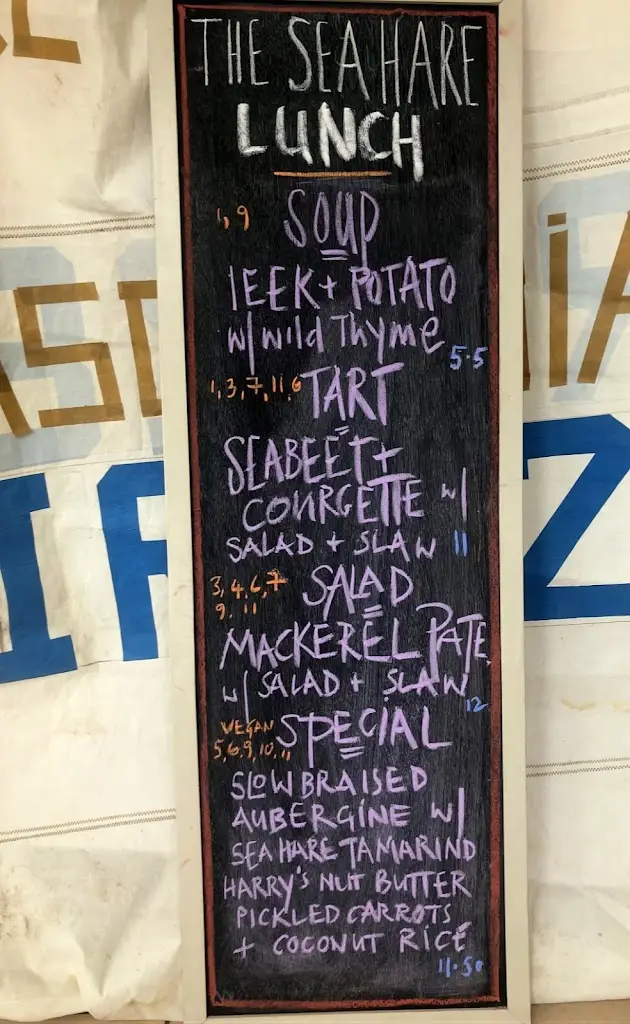 THE SEA HARE
LUNCH
1, 9 SOUP
LEEK + POTATO
w/ wild Thyme
5.5
1, 3, 7, 11, 6 TART
SEABEET +
COURGETTE w/
SALAD + SLAW 11
3, 4, 6, 7
9. 11 SALAD
MACKEREL PATE
w/ SALAD + SLAW
12
VEGAN
5, 6, 9, 10, 11 SPECIAL
SLOW BRAISED
AUBERGINE w/
SEA HARE TAMARIND
HARRY'S NUT BUTTER
PICKLED CARROTS
+ COCONUT RICE
11.50